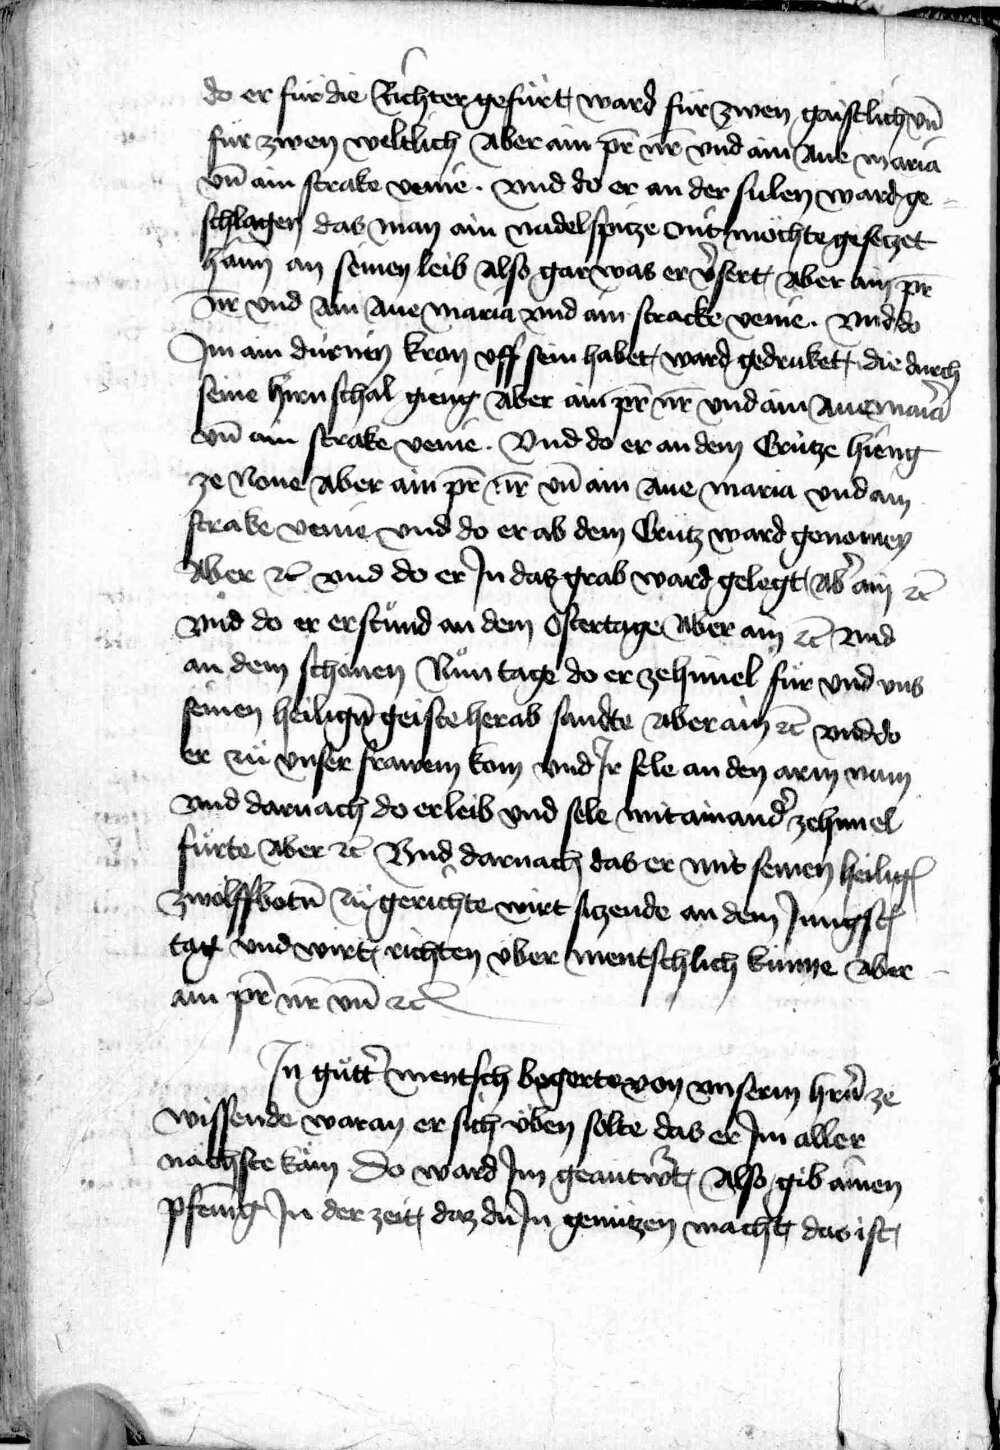 do er für die Richter gefürt ward für zwen gaistlich vn̄
für zwen weltlich Aber ain pr̄ nr̄ vnd ain Aue maria
vn̄ ain strake venie. vnd do er an der sulen ward ge
schlagen das man ain nadelspicze nit möchte geseczet
han an seinen leib Also gar was er v̉sert Aber ain pr̄
nr̄ vnd ain Aue maria vnd ain stracke venie. vnd do
Im ain dürnin kron vff sein habet ward gedruket die durch
seine hirnschal gieng Aber ain pr̄ nr̄ vnd ain Aue maria
vn̄ ain strake venie. Vnd do er an dem Crütze hieng
ze None Aber ain pr̄ nr̄ vn̄ ain Aue maria vnd ain
strake venie vnd do er ab dem Crütz ward genomen
Aber ⁊c̄ vnd do er In das grab ward gelegt Ab̉ ain ⁊c̄
vnd do er erstůnd an dem Ostertage Aber ain ⁊c̄ vnd
an dem schönen Nůntage do er ze himel fůr vnd vns
seinen heilign̄ geiste herab sandte Aber ain ⁊c̄ vnd do
er zů vnser frawem kom vnd Ir sele an den arm nam
vnd darnach do er leib vnd sele mit ainand̉ ze himel
fůrte Aber ⁊c̄ Vnd darnach das er mit seinen heiliḡ
zwölffbotn̄ zů gerichte wirt siczende an dem Jungst̄
tag vnd wirt richten über mentschlich künne Aber
ain pr̄ nr̄ vn̄ ⁊c̄
In gůtt̉ mentsch begerte von vnserm hrn̄ ze
wissende waran er sich üben sölte das er Im aller
nächste käm Do ward Im geantw̉t Also gib ainen
pfenīg In der zeit daz du In genutzen macht das ist